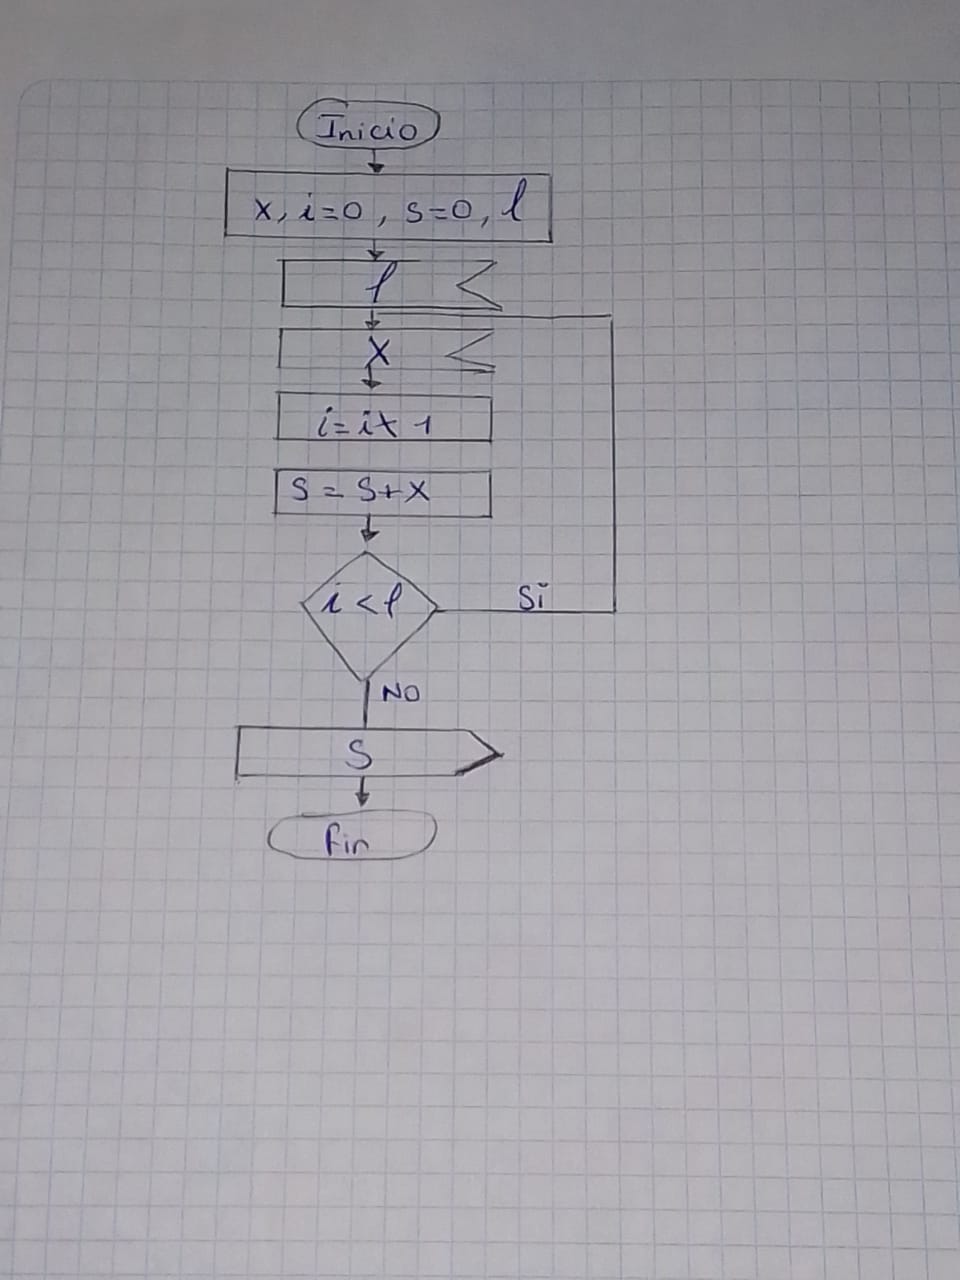 Inicio
x, i=0, s=0, l
l
x
i=i+1
s=s+x
i<l
Si
NO
S
fin